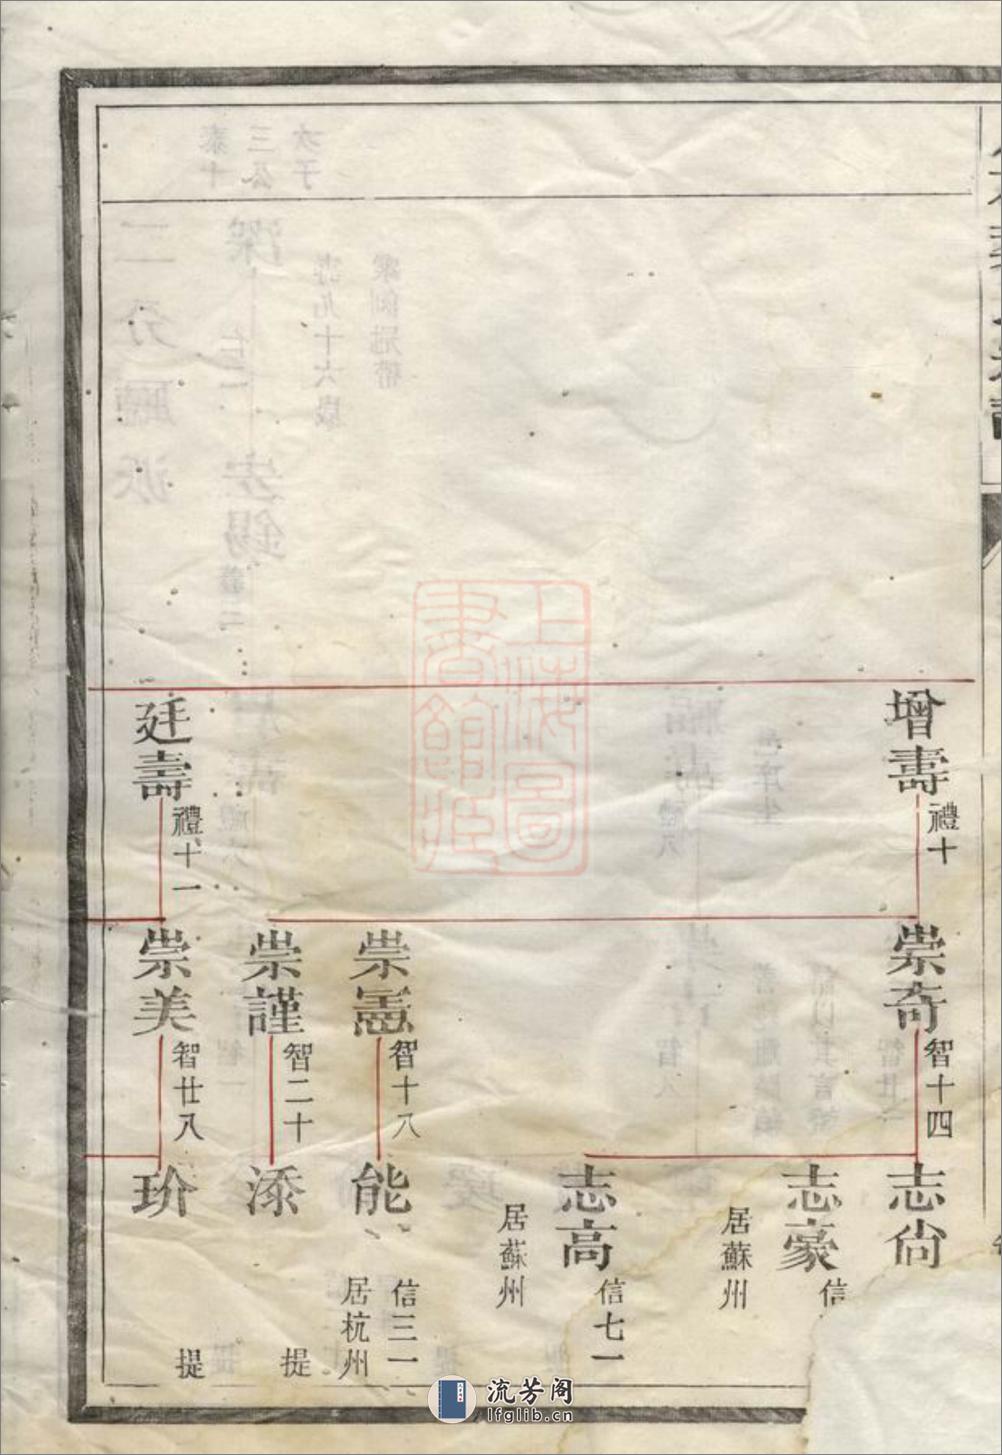 增壽
禮十
崇奇
智十四
志尙
志豪
信
居蘇州
志高
信七一
居蘇州
崇憲
智十八
能
信三一
居杭州
崇謹
智二十
添
提
廷壽
禮十一
崇美
智廿八
玠
提
上海圖
書館藏
流芳阁
lfglib.cn